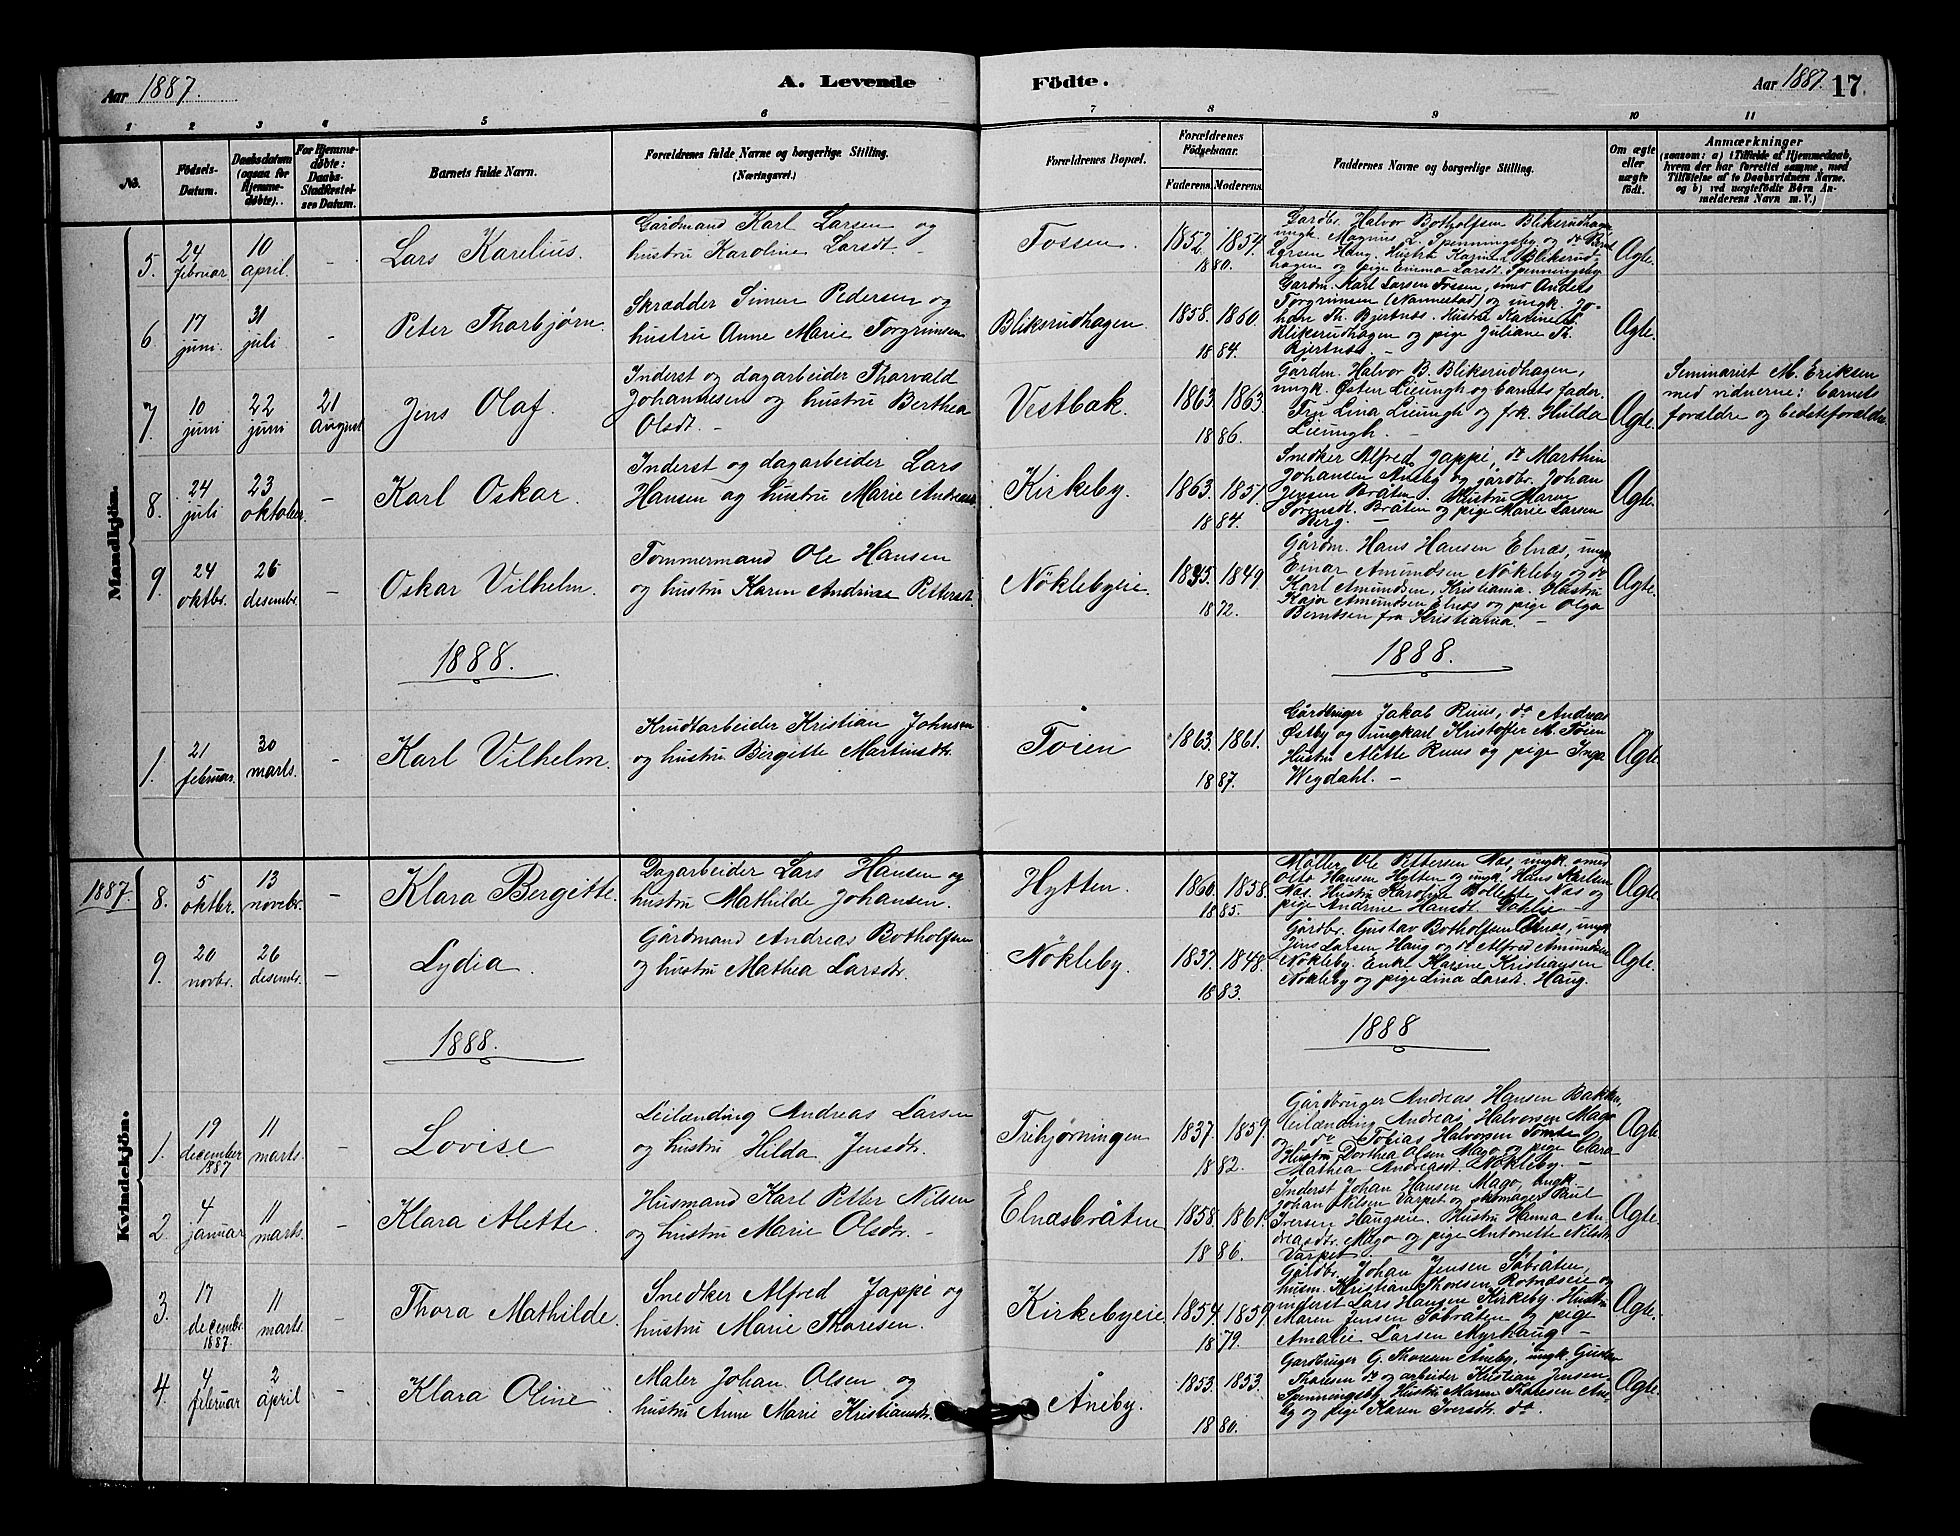 Aar 1887.
A. Levende Födte.
Aar 1887. 17.
1 2 3 4 5 6 7 8 9 10 11
No.
Födsels-
Datum.
Daabsdatum
(ogsaa for
Hjemme-
döbte).
For Hjemme-
döbte:
Daabs-
Stadfæstel-
ses Datum.
Barnets fulde Navn.
Forældrenes fulde Navne og borgerlige Stilling.
(Næringsvei.)
Forældrenes Bopæl.
Forældrenes
Födselsaar.
Faderens. Moderens.
Faddernes Navne og borgerlige Stilling.
Om ægte
eller
uægte
födt.
Anmærkninger
(saasom: a) i Tilfælde af Hjemmedaab,
hvem der har forrettet samme, med
Tilföielse af to Daabsvidners Navne.
og b) ved uægtefödte Börn An-
melderens Navn m. V.)
Mandkjön.
5. 24 februar 10 april. -
Lars Karelius.
Gårdmand Karl Larsen og
hustru Karoline Larsdt. -
Fossen.
1852. 1854.
1880.
Gardbr. Halvor Botholfsen Bliksrudhagen,
ungk. Magnus L. Spenningsby og do
Larsen Haug. Hustru Karine L. Bliksrud-
hagen og pige Emma Larsdt. Spenningsby
Ægte.
6. 17 juni. 31 juli -
Peter Thorbjørn.
Skrædder Simen Pedersen og
hustru Anne Marie Torgrimsen
Bliksrudhagen.
1858. 1860.
1884.
Gardm. Karl Larsen Fossen, smed Anders
Torgrimsen (Nannestad) og ungk. Jo-
han Th. Bjertnæs. Hustru Karine L.
Bliksrudhagen og pige Juliane Th.
Bjertnæs. -
Ægte.
7. 10 juni 22 juni 21 august
Jens Olaf.
Inderst og dagarbeider Thorvald
Johannesen og hustru Berthea
Olsdt. -
Vestbak.
1863. 1863.
1886.
Gårdm. Halvor B. Bliksrudhagen,
ungk. Østen Lieungh og barnets fader.
Fru Lina Lieungh og frk. Hilda
Lieungh. -
Ægte.
Seminarist M. Eriksen
med vidnerne: barnets
forældre og bedsteforældre.
8. 24 juli 23 oktober. -
Karl Oskar.
Inderst og dagarbeider Lars
Hansen og hustru Marie Andreasdt.
Kirkeby.
1863. 1857.
1884.
Snedker Alfred Jappe, do Marthin
Johansen Aneby og gårdbr. Johan
Jensen Bråten. Hustru Maren
Sørensdt. Bråten og pige Marie Larsen
Berg. -
Ægte.
9. 24 oktbr. 26 desembr. -
Oskar Vilhelm.
Tømmermand Ole Hansen
og hustru Karen Andrine Pettersdt.
Nöklebyeie.
1845. 1849.
1872.
Gårdm. Hans Hansen Elnæs, ungk.
Einar Amundsen Nøkleby og do
Karl Amundsen, Kristiania. Hustru
Kaja Amundsen Elnæs og pige Olga
Berntsen fra Kristiania. -
Ægte.
1888. 1888.
1. 21 februar. 30 marts. -
Karl Vilhelm.
Krudtarbeider Kristian Johnsen
og hustru Birgitte Martinsdtr.
Toien
1863. 1861.
1887.
Gårdbruger Jakob Ruus, do Andreas
Østby og ungkarl Kristoffer M. Toien
Hustru Alette Ruus og pige Inga
Wegdahl. -
Ægte.
Kvindekjön.
1887. 8. 5 oktbr. 13 novbr. -
Klara Bergitte.
Dagarbeider Lars Hansen og
hustru Mathilde Johansen.
Hytten.
1860. 1858.
1885.
Møller Ole Pettersen Næs, ungk. smed
Otto Hansen Hytten og ungk. Hans Karlsen
Næs. Hustru Karoline Bollette Næs og
pige Andrine Hansdt.
Ægte.
9. 20 novbr. 26 desembr. -
Lydia.
Gårdmand Andreas Botholfsen
og hustru Mathea Larsdtr.
Nökleby.
1837. 1848.
1883.
Gårdbr. Gustav Botholfsen Elnæs, ungk.
Jens Larsen Haug og do Alfred Amundsen
Nøkleby. Enke Karine Kristiansen
Nøkleby og pige Lina Larsdt. Haug.
Ægte.
1888. 1888
1. 19 december 1887 11 marts. -
Lovise
Leilænding Andreas Larsen
og hustru Hilda Jensdtr.
Trehjørningen
1837. 1859.
1882.
Gårdbruger Andreas Hansen Bakken,
leilænding Andreas Halvorsen Mago
og do Tobias Halvorsen Tomte
Hustru Dorthea Olsen Mago og pige Clara
Mathea Andreasdt. Nøkleby. -
Ægte
2. 4 januar 11 marts. -
Klara Alette
Husmand Karl Petter Nilsen
og hustru Marie Olsdtr. -
Elnæsbråten
1858. 1861.
1886.
Inderst Johan Hansen Mago, ungk.
Johan Nilsen Varpet og skomager Paul
Iversen Haugseie. Hustru Hanna An-
dreasdtr. Mago og pige Antonette Nilsdt.
Varpet.
Ægte.
3. 17 decembr. 1887. 11 marts. -
Thora Mathilde.
Snedker Alfred Jappe og
hustru Marie Thoresen.
Kirkebyeie
1854. 1859
1879.
Gårdbr. Johan Jensen Søbråten,
husm. Kristian Thoresen Rotnæseie og
inderst Lars Hansen Kirkeby. Hustru
Maren Jensen Søbråten og pige
Amalie Larsen Myrhaug -
Ægte.
4. 4 februar 2 april -
Klara Oline
Maler Johan Olsen og
hustru Anne Marie Kristiansdtr.
Åneby.
1853. 1853.
1880.
Gardbruger G. Thoresen Åneby, ungk. Gustav
Thoresen do og arbeider Kristian Jensen
Spenningsby. Hustru Maren Thoresen Åne-
by og pige Karen Iversdt. do.
Ægte.